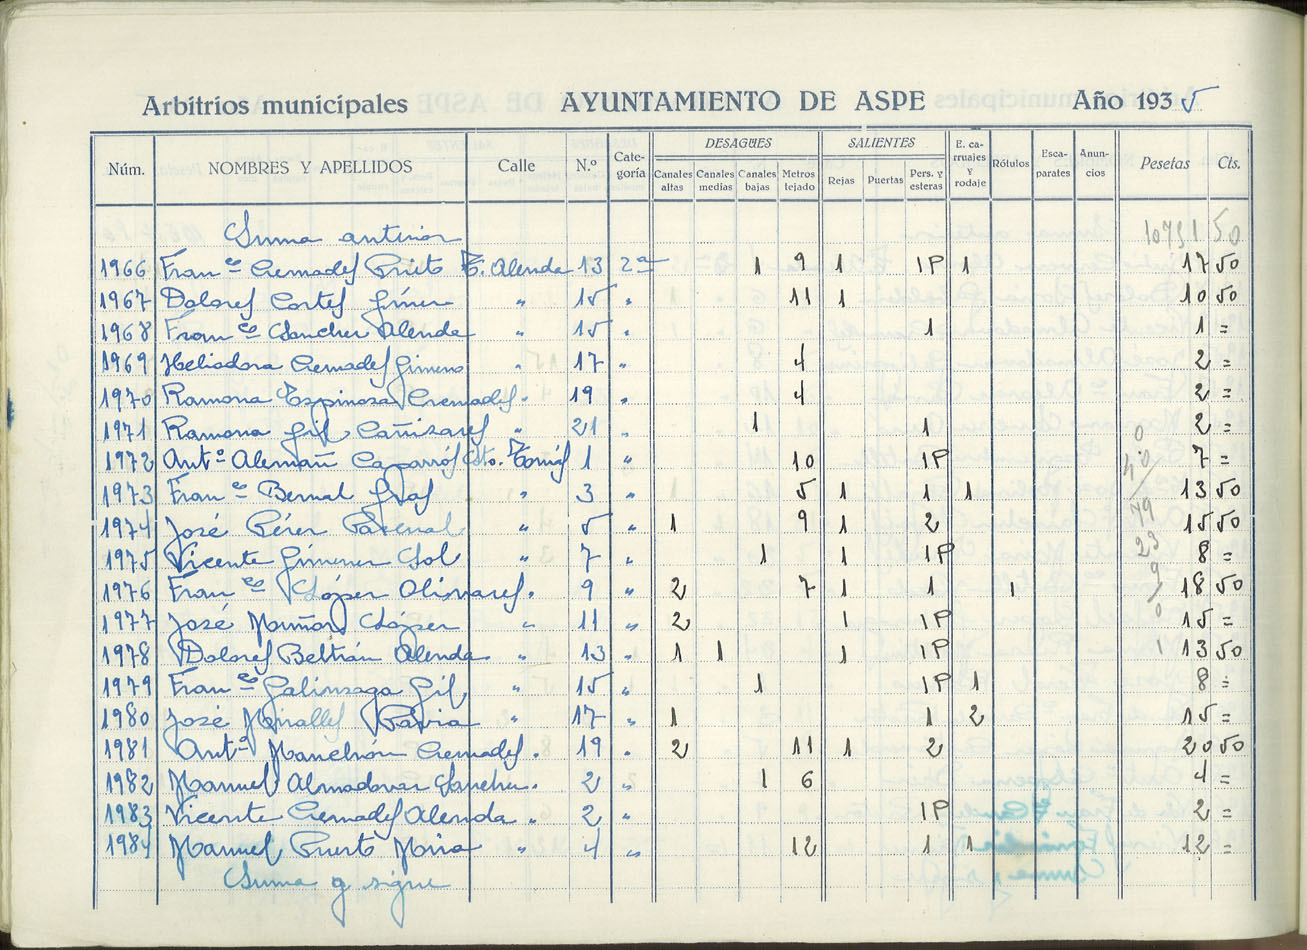 Arbitrios municipales AYUNTAMIENTO DE ASPE Año 1935
DESAGÜES SALIENTES
Núm. NOMBRES Y APELLIDOS Calle N.º Cate-goría Canales altas Canales medias Canales bajas Metros tejado Rejas Puertas Pers. y esteras E. ca-rruajes y rodaje Rótulos Esca-parates Anun-cios Pesetas Cts.
Suma anterior 10751 50
1966 Fran co Cremades Prieto T. Alenda 13 2ª 1 9 1 1P 1 17 50
1967 Dolores Cortes Giner " 15 " 11 1 10 50
1968 Fran co Sanchez Alenda " 15 " 1 1 =
1969 Heliodora Cremades Gimeno " 17 " 4 2 =
1970 Ramona Espinosa Cremades " 19 " 4 2 =
1971 Ramona Gil Cañizares " 21 " 1 1 2 =
1972 Antº Alemañ Caparrós Sto. Tomás 1 " 10 1P 7 =
1973 Fran co Bernal Gras " 3 " 5 1 1 1 13 50
1974 José Pérez Bernal " 5 " 1 9 1 2 15 50
1975 Vicente Gimenez Sol " 7 " 1 1 1P 8 =
1976 Fran co López Olivares " 9 " 2 7 1 1 1 18 50
1977 José Muñoz López " 11 " 2 1 1P 15 =
1978 Dolores Beltrán Alenda " 13 " 1 1 1 1P 13 50
1979 Fran co Galinzaga Gil " 15 " 1 1P 1 8 =
1980 José Miralles Pavia " 17 " 1 1 2 15 =
1981 Antª Manchón Cremades " 19 " 2 11 1 2 20 50
1982 Manuel Almodovar Sanchez " 2 " 1 6 4 =
1983 Vicente Cremades Alenda " 2 " 1P 2 =
1984 Manuel Puerto Mira " 4 " 12 1 1 12 =
Suma q sigue